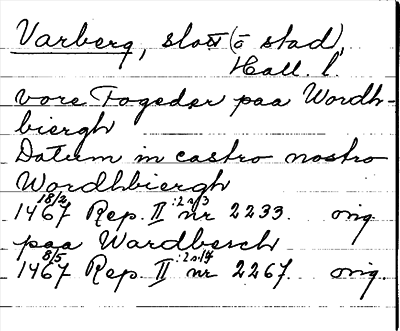 Varberg, slott (o stad),
Hall. l.
vore Fogeder paa Wordh-
biergh
Datum in castro nostro
Wordhbiergh
18/2 1467 Rep. II :2 s/3 nr 2233. orig
paa Wardbersch
8/5 1467 Rep. II nr 2267. orig.